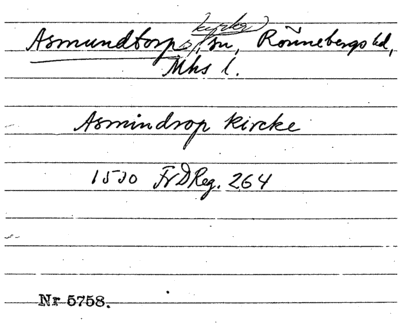 kyrka
Asmundtorp, sn, Rönnebergs hd,
Mhs l.
Asmindrop kircke
1530 FrDReg. 264
Nr 5758.